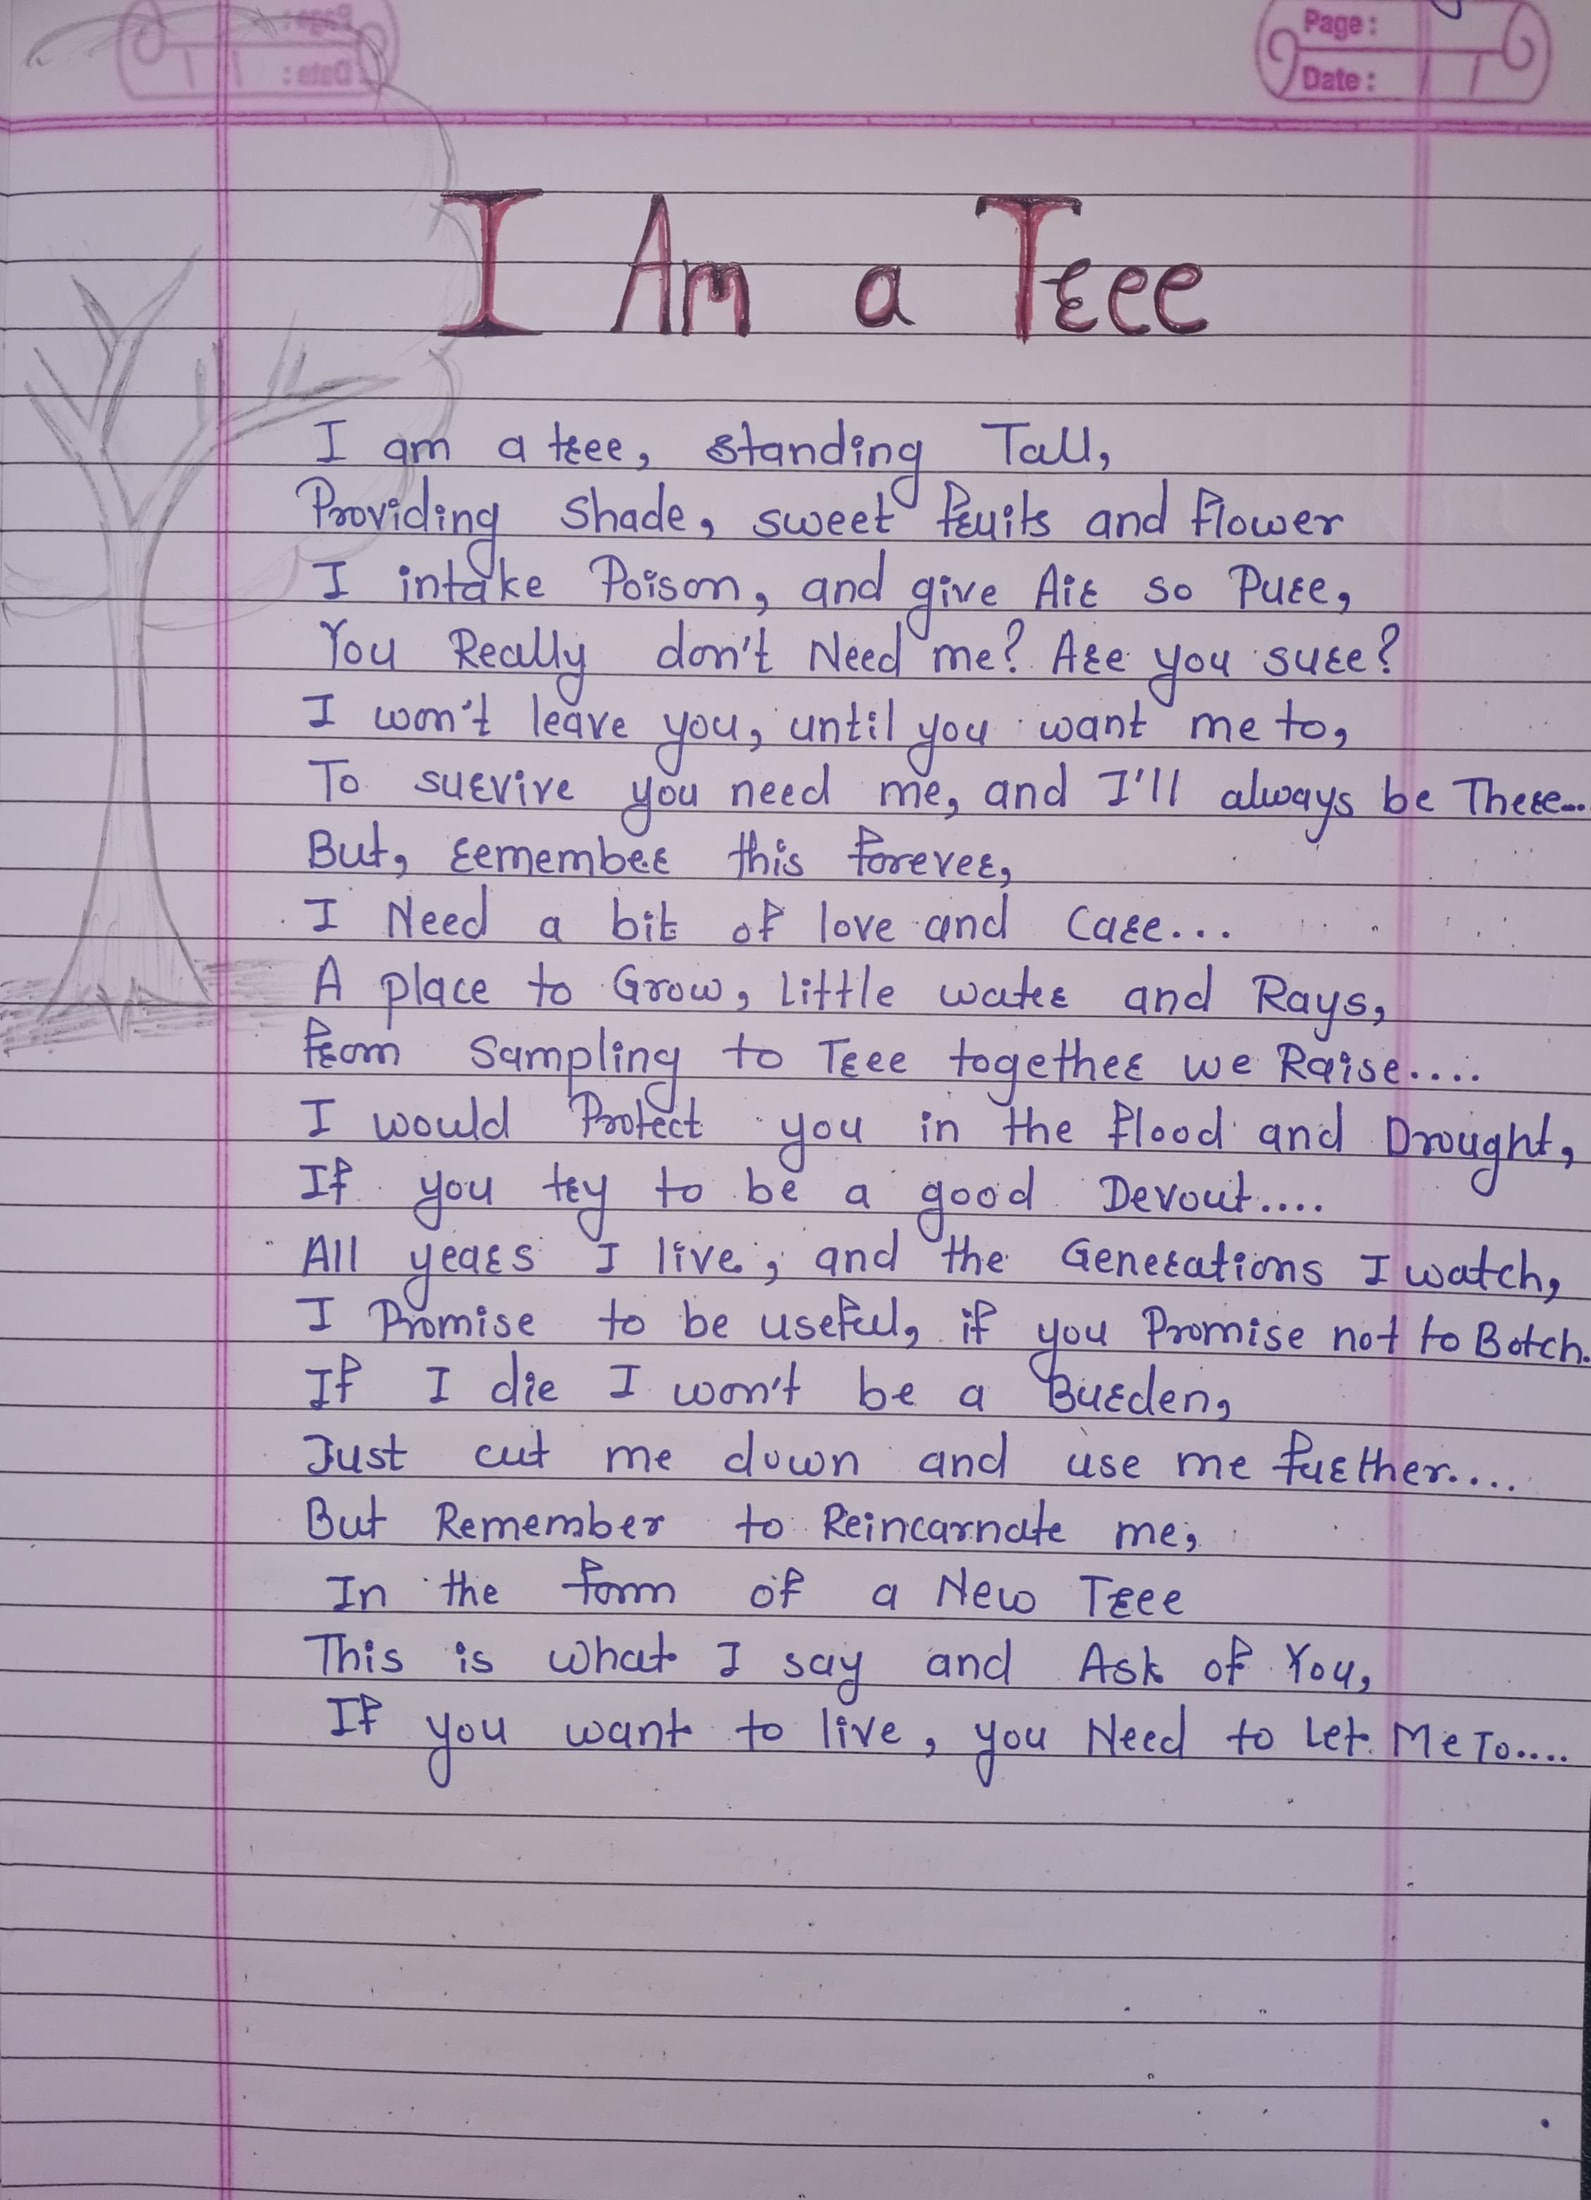 Page :
Date :
I Am a Tree
I am a tree, standing Tall,
Providing Shade, sweet fruits and flower
I intake Poison, and give Air so Pure,
You Really don't Need me? Are you sure?
I won't leave you, until you want me to,
To survive you need me, and I'll always be There...
But, remember this forever,
I Need a bit of love and Care...
A place to Grow, Little water and Rays,
from Sampling to Tree together we Raise....
I would Protect you in the flood and Drought,
If you try to be a good Devout....
All years I live, and the Generations I watch,
I Promise to be useful, if you Promise not to Botch.
If I die I won't be a Burden,
Just cut me down and use me further....
But Remember to Reincarnate me,
In the form of a New Tree
This is what I say and Ask of You,
If you want to live, you Need to Let Me To....